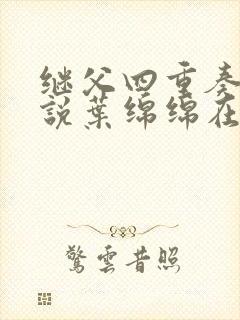 继父四重奏
說葉绵绵在
驚雲昔照